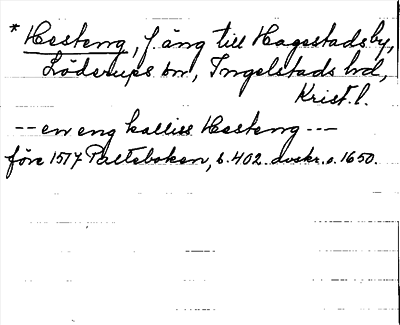 * Hesteng, f. äng till Hagestads by,
Löderups sn, Ingelstads hd,
Krist. l.
-- en eng kalliss Hesteng ---
före 1517 Palteboken, s. 402. avskr. o. 1650.